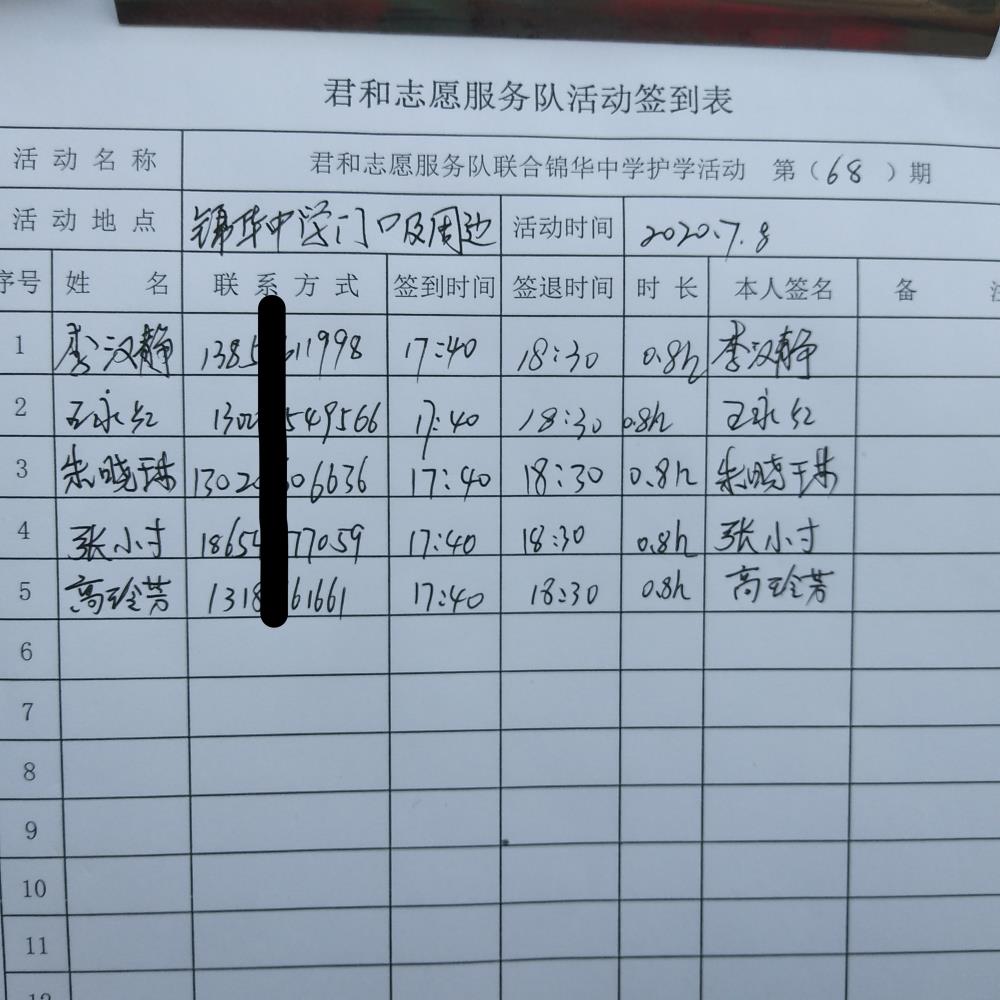 君和志愿服务队活动签到表
活动名称 君和志愿服务队联合锦华中学护学活动 第（68）期
活动地点 锦华中学门口及周边 活动时间 2020.7.8
序号 姓名 联系方式 签到时间 签退时间 时长 本人签名 备注
1 李汉静 1385 11998 17:40 18:30 0.8h 李汉静
2 王永红 130 549566 17:40 18:30 0.8h 王永红
3 朱晓珠 1302 06636 17:40 18:30 0.8h 朱晓珠
4 张小寸 1865 77059 17:40 18:30 0.8h 张小寸
5 高玲芳 1318 61661 17:40 18:30 0.8h 高玲芳
6
7
8
9
10
11
12